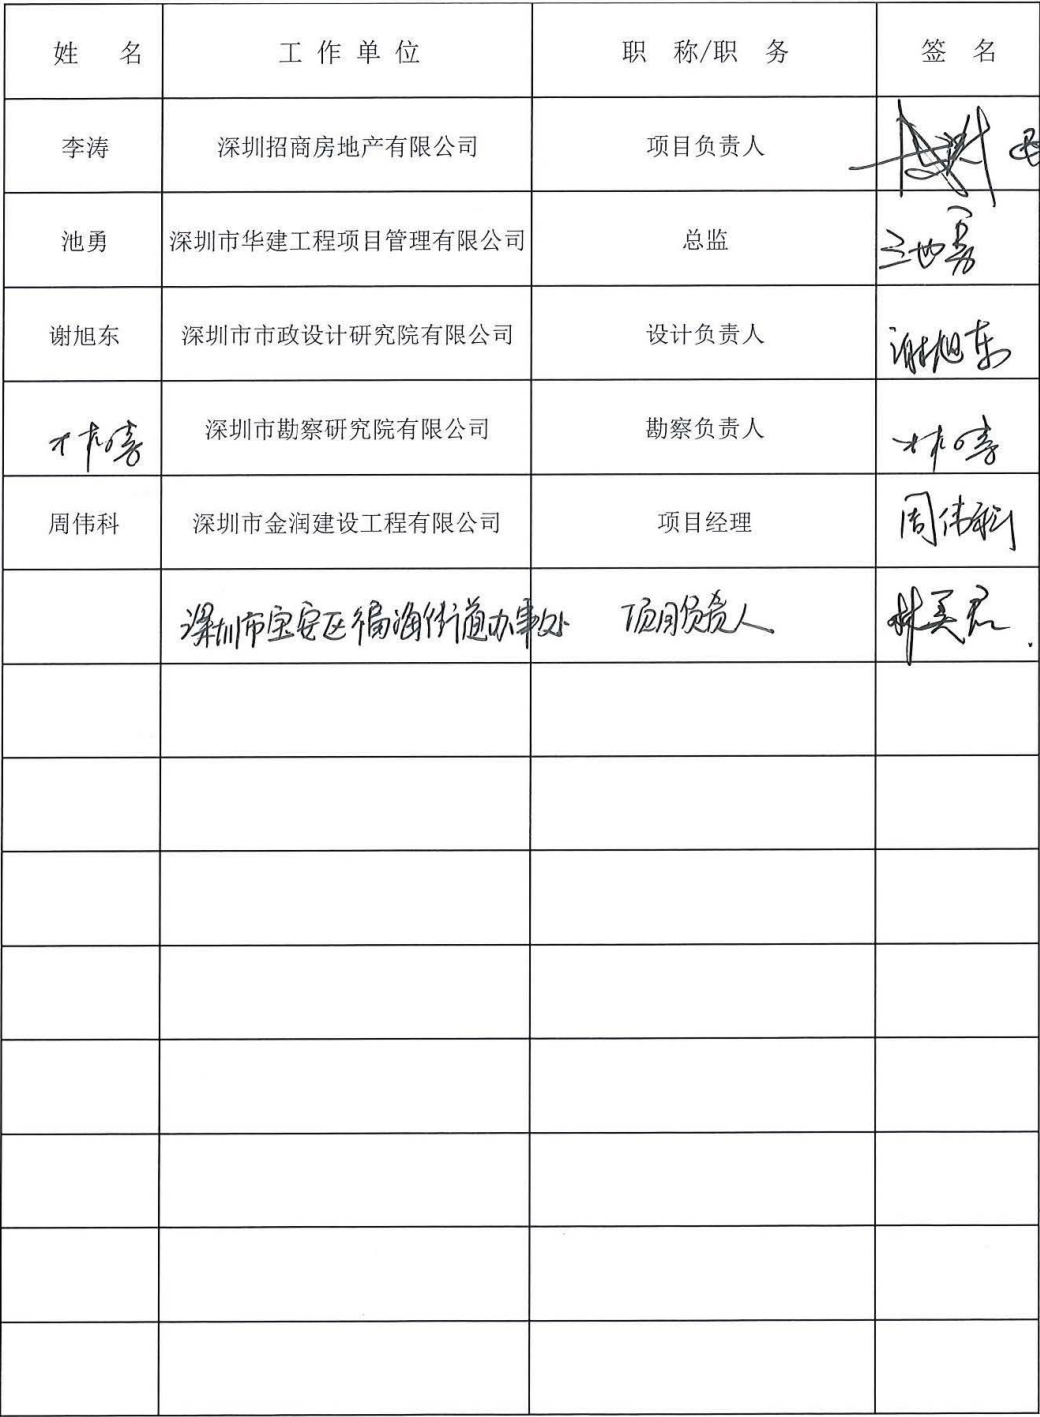 姓 名 工作单位 职 称/职 务 签 名
李涛 深圳招商房地产有限公司 项目负责人
池勇 深圳市华建工程项目管理有限公司 总监 池勇
谢旭东 深圳市市政设计研究院有限公司 设计负责人 谢旭东
深圳市勘察研究院有限公司 勘察负责人
周伟科 深圳市金润建设工程有限公司 项目经理 周伟科
深圳市宝安区福海街道办事处 项目负责人